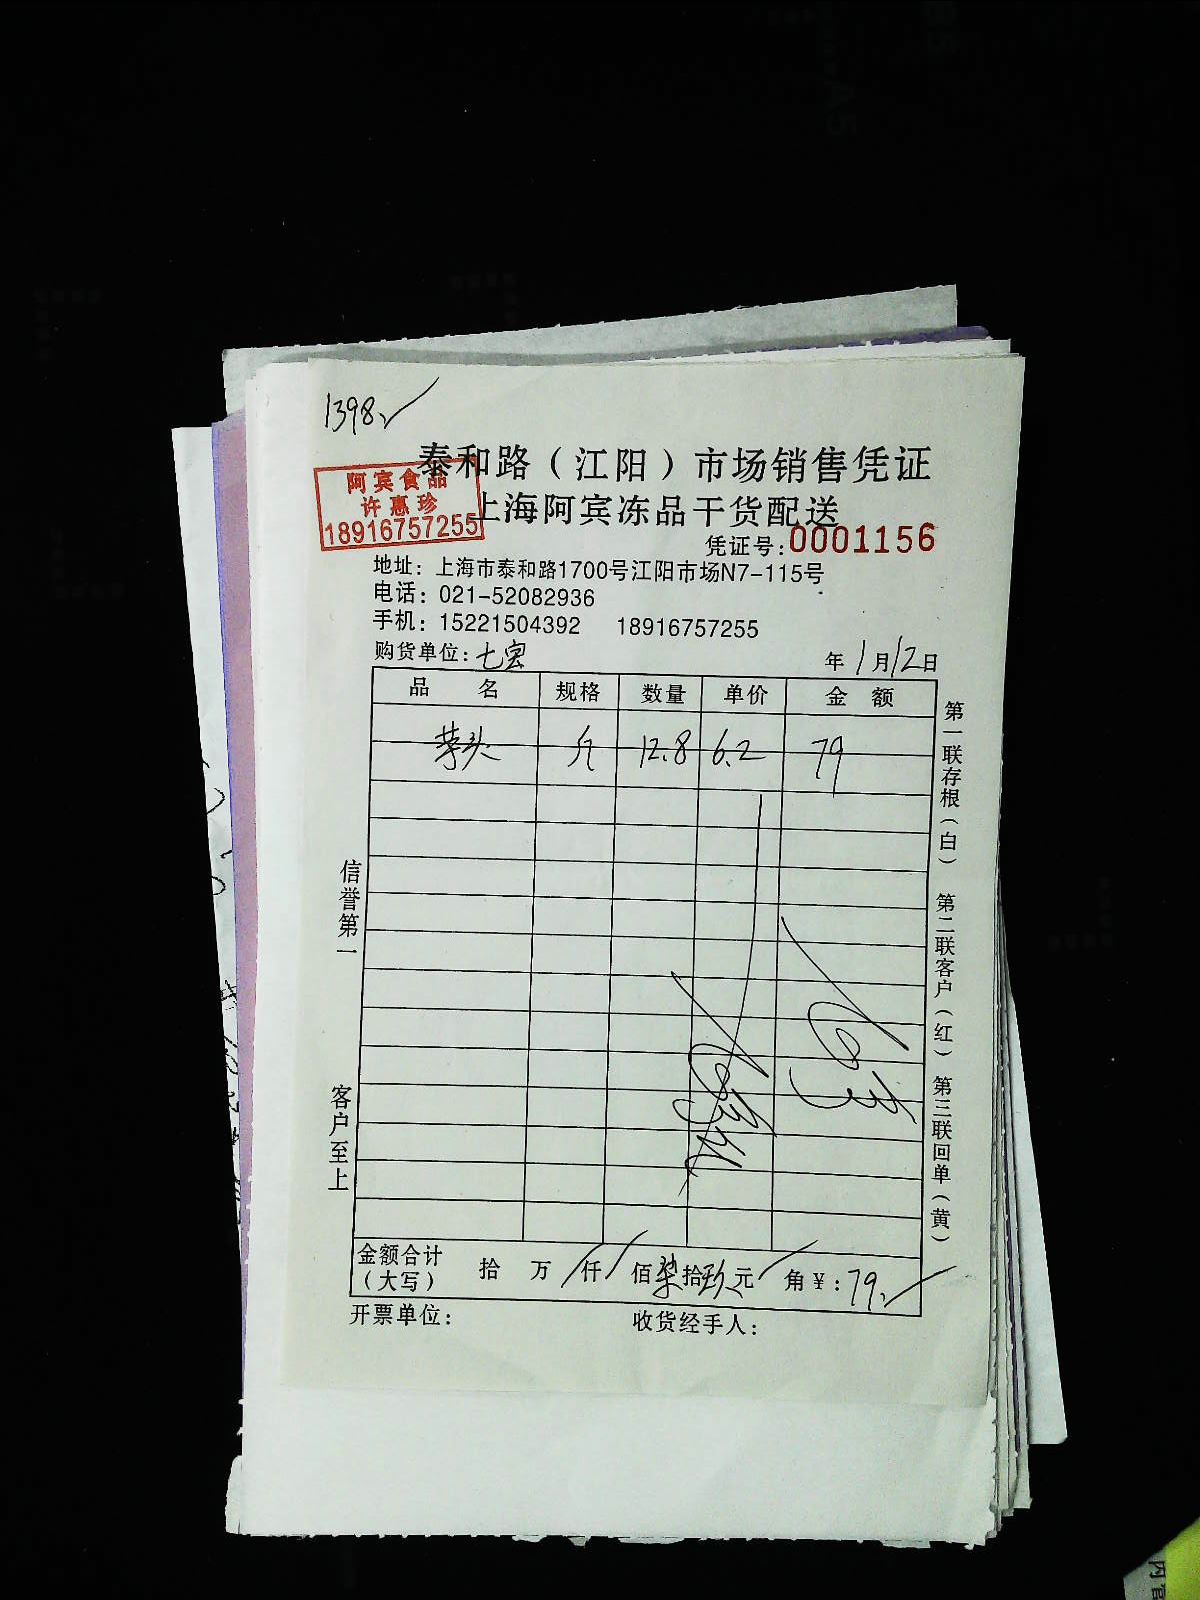 1398
泰和路（江阳）市场销售凭证
阿宾食品
许惠珍
18916757255
上海阿宾冻品干货配送
凭证号:0001156
地址：上海市泰和路1700号江阳市场N7-115号
电话：021-52082936
手机：15221504392 18916757255
购货单位:七宏 年1月12日
品 名 规格 数量 单价 金 额
芋头 斤 12.8 6.2 79
信誉第一
客户至上
第一联存根（白） 第二联客户（红） 第三联回单（黄）
金额合计（大写） 拾 万 仟 佰柒拾玖元 角￥:79
开票单位: 收货经手人: